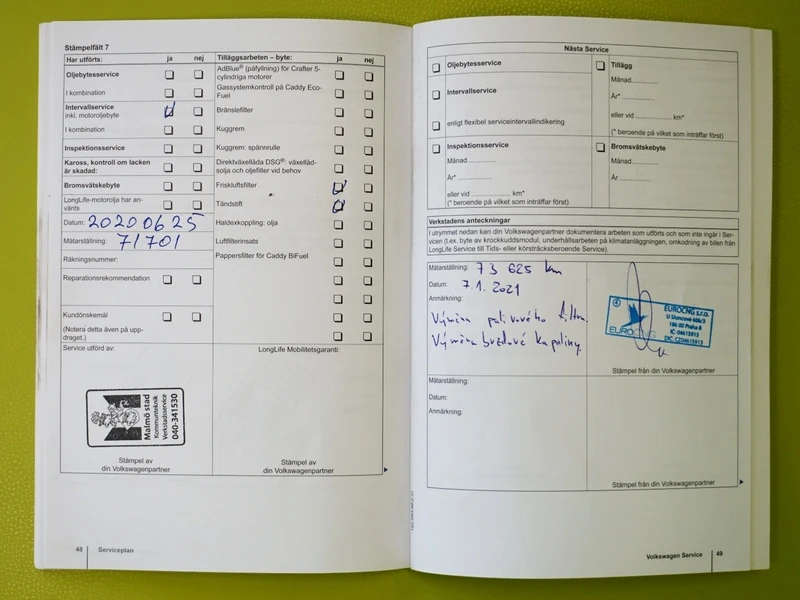 Stämpelfält 7
Har utförts: ja nej
Oljebytesservice
I kombination
Intervallservice
inkl. motoroljebyte
I kombination
Inspektionsservice
Kaross, kontroll om lacken
är skadad:
Bromsvätskebyte
LongLife-motorolja har an-
vänts
Datum: 20200625
Mätarställning: 71701
Räkningsnummer:
Reparationsrekommendation
Kundönskemål
(Notera detta även på upp-
draget.)
Service utförd av:
Malmö stad
Kommunteknik
Verkstadsservice
040-341530
Stämpel av
din Volkswagenpartner
Tilläggsarbeten – byte: ja nej
AdBlue® (påfyllning) för Crafter 5-
cylindriga motorer
Gassystemkontroll på Caddy Eco-
Fuel
Bränslefilter
Kuggrem
Kuggrem: spännrulle
Direktväxellåda DSG®: växellåd-
solja och oljefilter vid behov
Friskluftsfilter
Tändstift
Haldexkoppling: olja
Luftfilterinsats
Pappersfilter för Caddy BiFuel
LongLife Mobilitetsgaranti:
Stämpel av
din Volkswagenpartner
48 Serviceplan
Nästa Service
Oljebytesservice
Intervallservice
enligt flexibel serviceintervallindikering
Inspektionsservice
Månad
År*
eller vid km*
(* beroende på vilket som inträffar först)
Tillägg
Månad
År*
eller vid km*
(* beroende på vilket som inträffar först)
Bromsvätskebyte
Månad
År
Verkstadens anteckningar
I utrymmet nedan kan din Volkswagenpartner dokumentera arbeten som utförts och som inte ingår i Ser-
vicen (t.ex. byte av krockkuddsmodul, underhållsarbeten på klimatanläggningen, omkodning av bilen från
LongLife Service till Tids- eller körsträcksberoende Service).
Mätarställning: 73 625 km
Datum: 7.1.2021
Anmärkning:
Výměna palivového filtru
Výměna brzdové kapaliny
4
EUROCNG
EUROCNG s.r.o.
U Slancové 606/3
186 00 Praha 8
IČ: 04615913
DIČ: CZ04615913
Stämpel från din Volkswagenpartner
Mätarställning:
Datum:
Anmärkning:
Stämpel från din Volkswagenpartner
Volkswagen Service 49